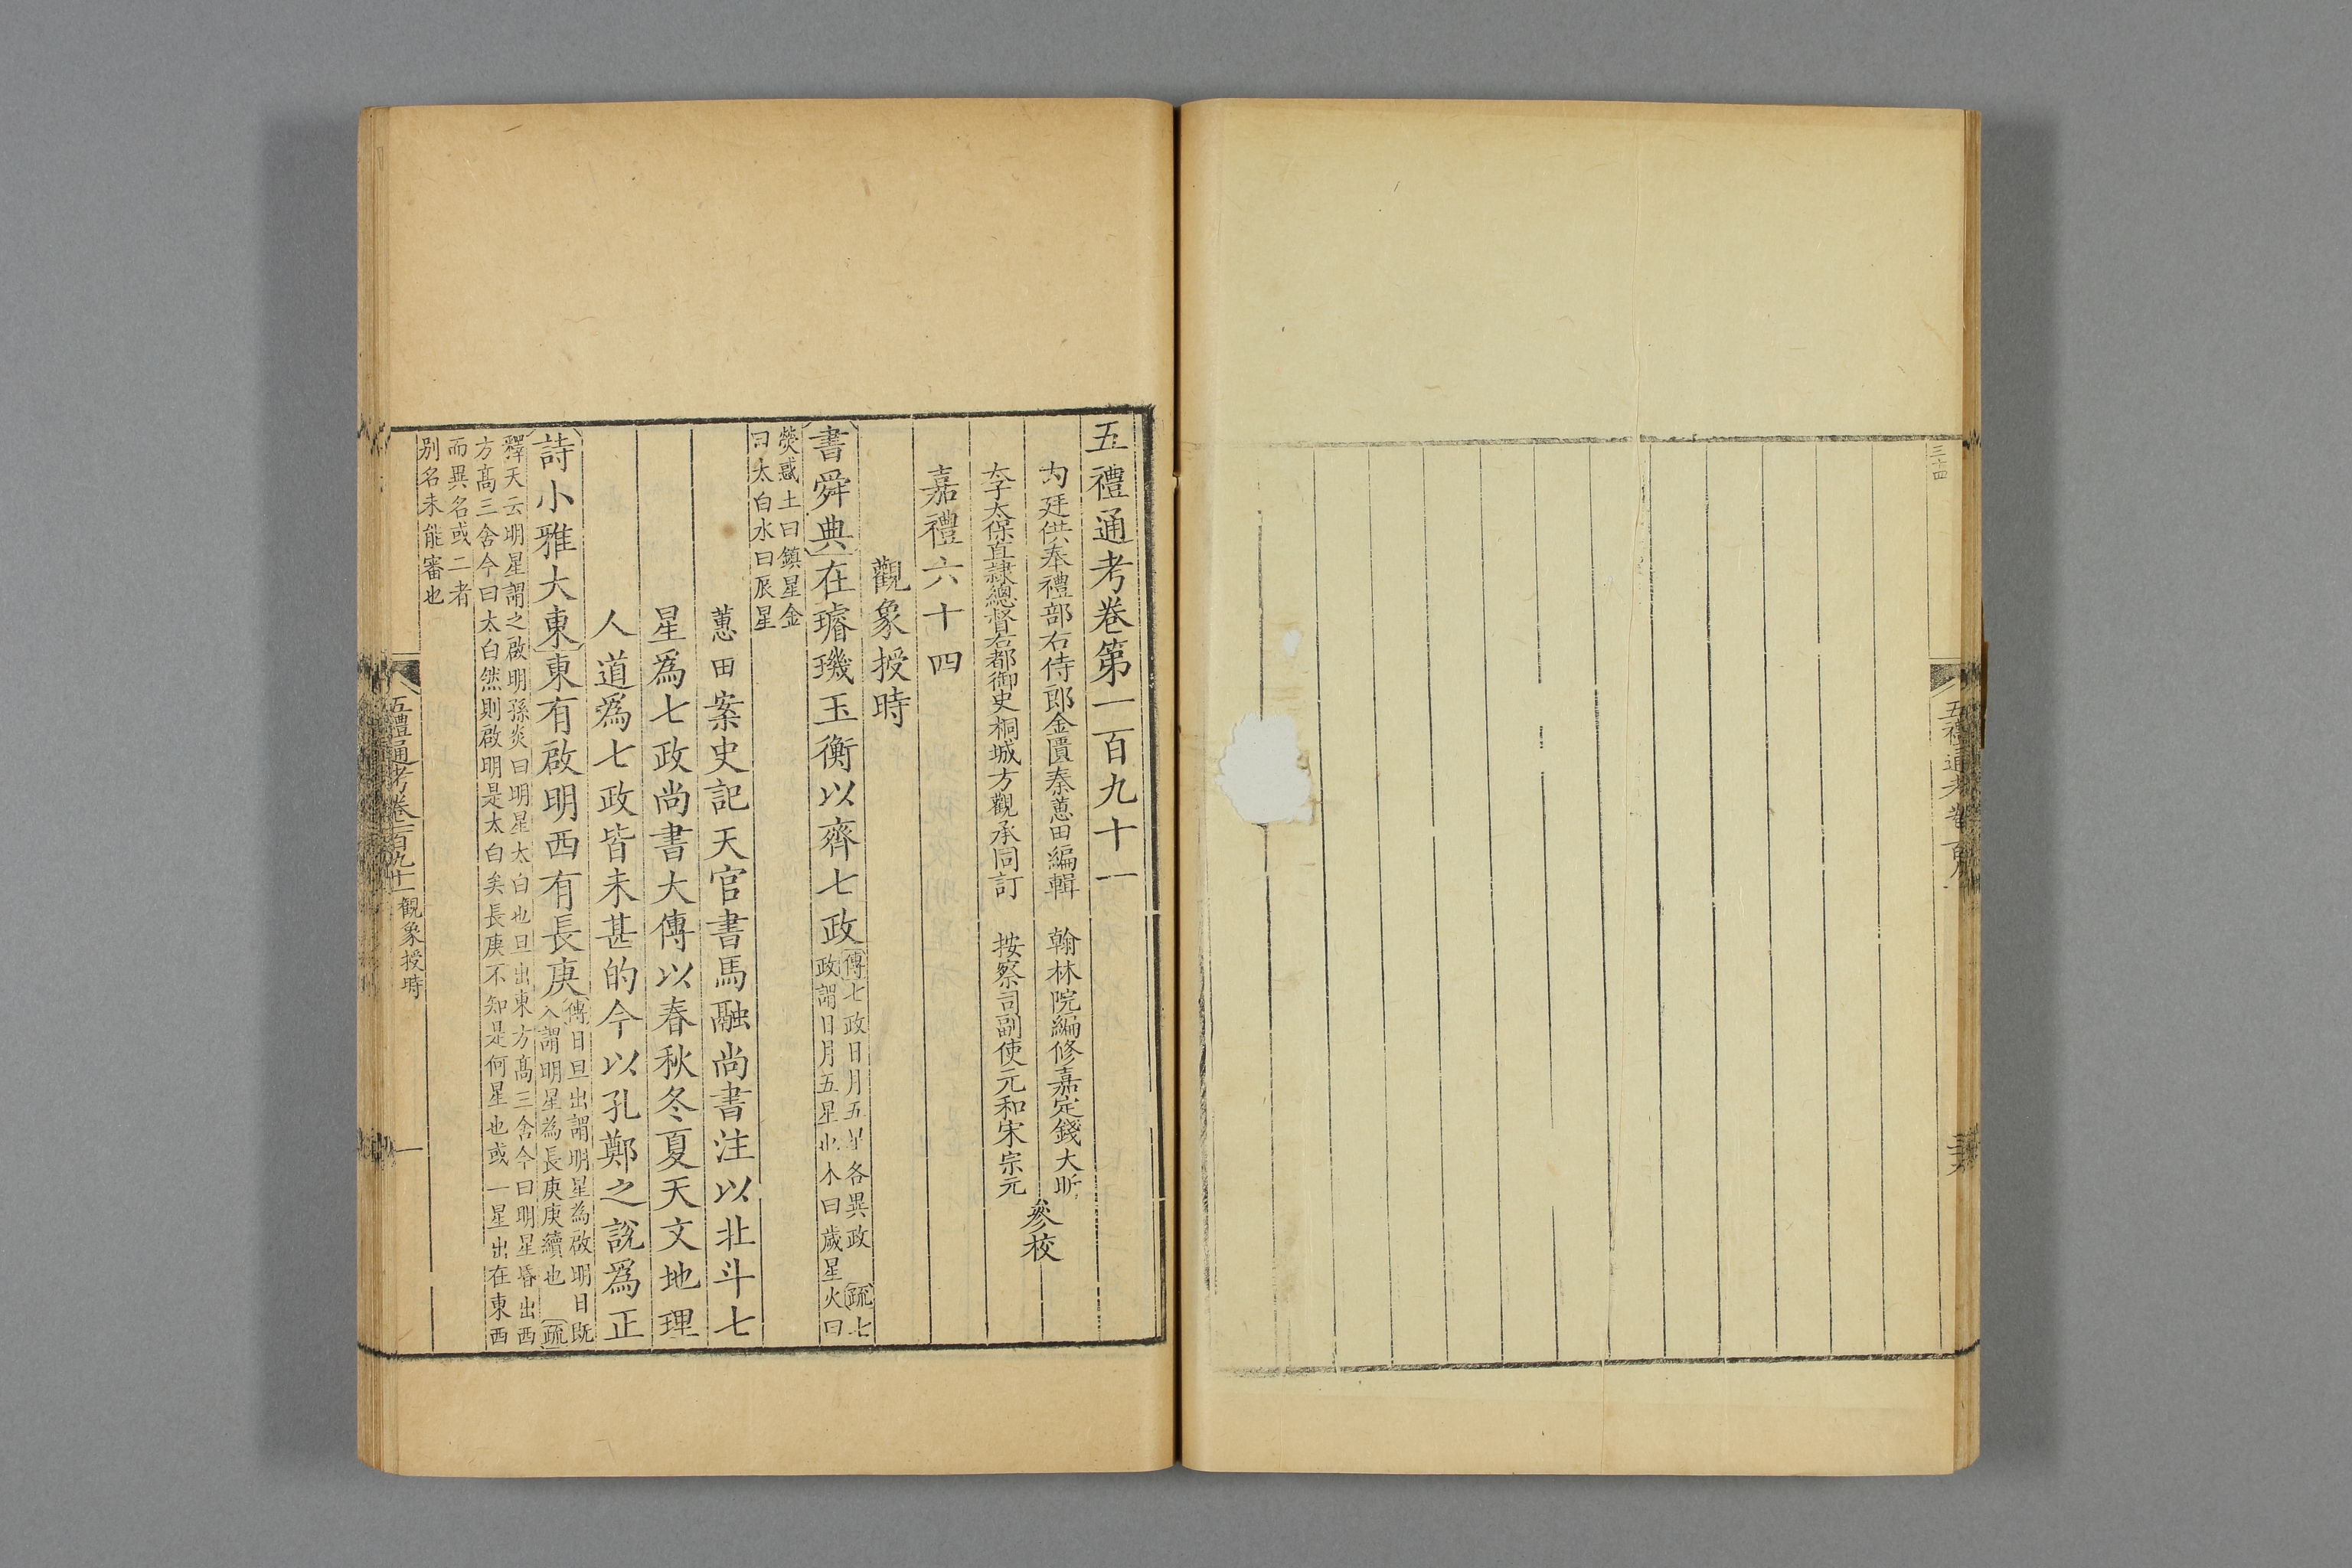 三十四
五禮通考卷
五禮通考卷第一百九十一
内廷供奉禮部右侍郎金匱秦蕙田編輯　翰林院編修嘉定錢大昕
太子太保直隷總督右都御史桐城方觀承同訂　按察司副使元和宋宗元
參校
嘉禮六十四
觀象授時
書舜典在璿璣玉衡以齊七政
傳七政日月五星各異政　疏七
政謂日月五星也木曰歲星火曰
熒惑土曰鎮星金
曰太白水曰辰星
蕙田案史記天官書馬融尚書注以北斗七
星爲七政尚書大傳以春秋冬夏天文地理
人道爲七政皆未甚的今以孔鄭之說爲正
詩小雅大東東有啟明西有長庚
傳日旦出謂明星為啟明日既
入謂明星為長庚庚續也　疏
釋天云明星謂之啟明孫炎曰明星太白也旦出東方高三舍今曰明星昏出西
方高三舍今曰太白然則啟明是太白矣長庚不知是何星也或一星出在東西
而異名或二者
别名未能審也
五禮通考卷一百九十一　觀象授時　一